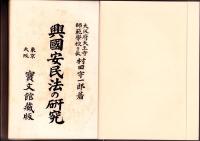 大阪府天王寺
師範學校々長 村田宇一郎著
興國安民法の研究
東京
大阪
寶文館藏版